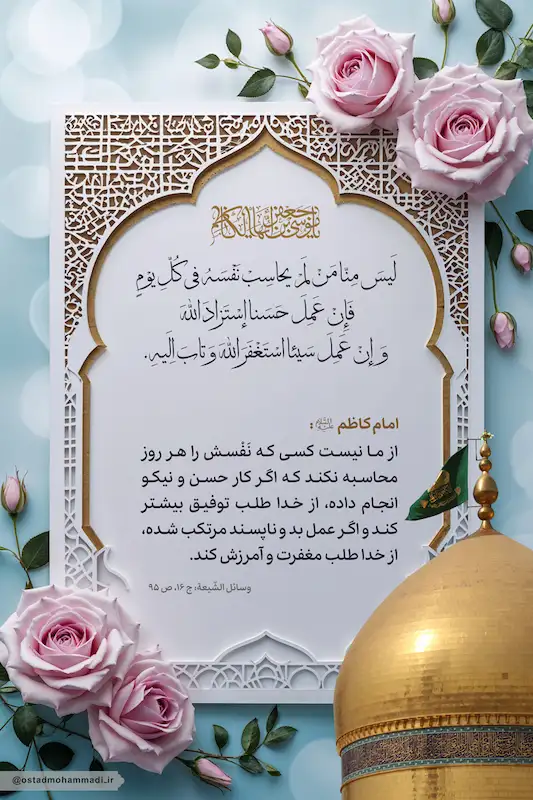 یا موسی بن جعفر ایها الکاظم
لَیسَ مِنّا مَنْ لَمْ یحاسِبْ نَفْسَهُ فی کُلِّ یَوْمٍ
فَإِنْ عَمِلَ حَسَنا إسْتَزادَ اللهَ
وَ إنْ عَمِلَ سَیئا اسْتَغْفَرَ اللهَ وَ تابَ اِلَیهِ.
امام کاظم علیه‌السلام:
از ما نیست کسی که نَفْسش را هر روز
محاسبه نکند که اگر کار حسن و نیکو
انجام داده، از خدا طلب توفیق بیشتر
کند و اگر عمل بد و ناپسند مرتکب شده،
از خدا طلب مغفرت و آمرزش کند.
وسائل الشّیعة: ج ۱۶، ص ۹۵
@ostadmohammadi_ir